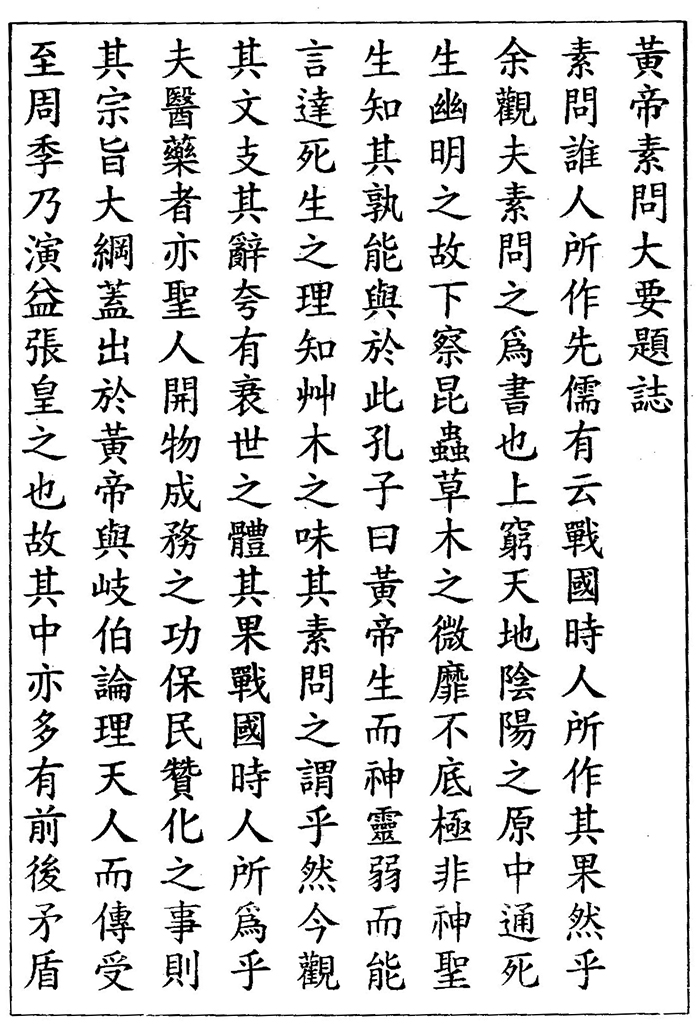 黃帝素問大要題誌
素問誰人所作先儒有云戰國時人所作其果然乎
余觀夫素問之爲書也上窮天地陰陽之原中通死
生幽明之故下察昆蟲草木之微靡不底極非神聖
生知其孰能與於此孔子曰黃帝生而神靈弱而能
言達死生之理知艸木之味其素問之謂乎然今觀
其文支其辭夸有衰世之體其果戰國時人所爲乎
夫醫藥者亦聖人開物成務之功保民贊化之事則
其宗旨大綱蓋出於黃帝與岐伯論理天人而傳受
至周季乃演益張皇之也故其中亦多有前後矛盾